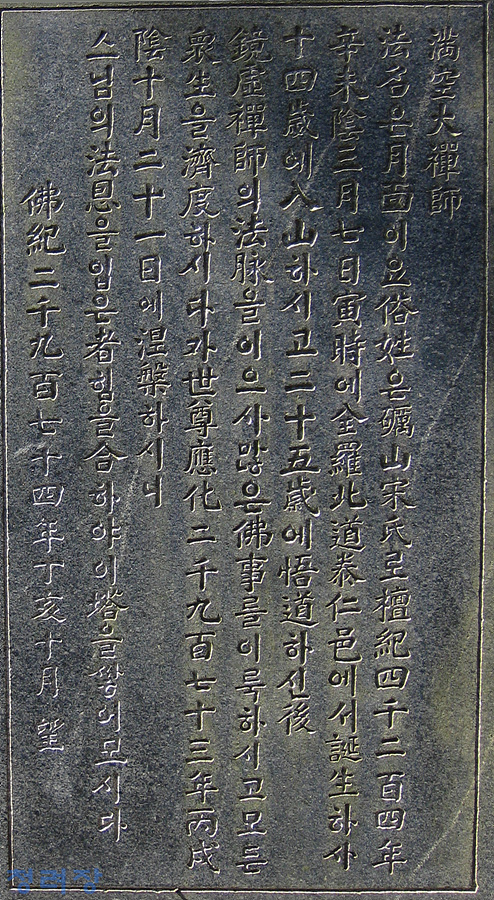 満空大禪師
法名은月面이요俗姓은礪山宋氏로檀紀四千二百四年
辛未陰三月七日寅時에全羅北道泰仁邑에서誕生하사
十四歲에入山하시고二十五歲에悟道하신後
鏡虛禪師의法脉을이으사많은佛事를이룩하시고모든
衆生을濟度하시다가世尊應化二千九百七十三年丙戌
陰十月二十一日에涅槃하시니
스님의法恩을입은者힘을合하야이塔을쌓어모시다
佛紀二千九百七十四年丁亥十月 望